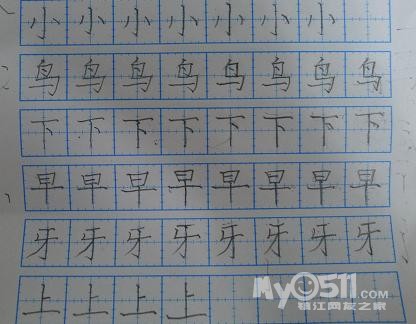 小小小小小小小
鸟鸟鸟鸟鸟鸟鸟鸟
下下下下下下下下
早早早早早早早早
牙牙牙牙牙牙牙牙
上上上上
My0511.com
镇江网友之家